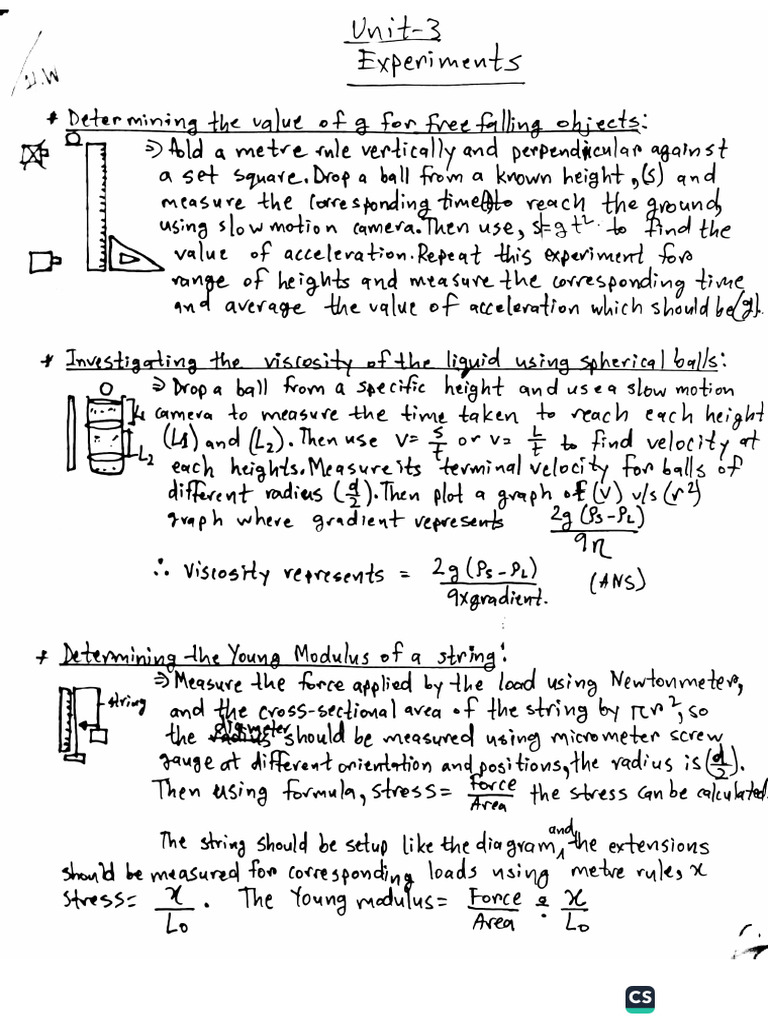 Unit-3
Experiments
* Determining the value of g for free falling objects:
⇒ Hold a metre rule vertically and perpendicular against
a set square. Drop a ball from a known height, (s) and
measure the corresponding time to reach the ground,
using slow motion camera. Then use, s=½gt². to find the
value of acceleration. Repeat this experiment for
range of heights and measure the corresponding time
and average the value of acceleration which should be (g).
* Investigating the viscosity of the liquid using spherical balls:
⇒ Drop a ball from a specific height and use a slow motion
L₁ camera to measure the time taken to reach each height
L₂ (L1) and (L₂). Then use v= s/t or v= L/t to find velocity at
each heights. Measure its terminal velocity for balls of
different radius (d/2). Then plot a graph of (v) v/s (r²)
graph where gradient represents 2g(ρs-ρL)/9η
∴ Viscosity represents = 2g(ρs-ρL)/9xgradient. (ANS)
* Determining the Young Modulus of a string:
⇒ Measure the force applied by the load using Newtonmeter,
string and the cross-sectional area of the string by πr², so
the diameter should be measured using micrometer screw
gauge at different orientation and positions, the radius is (d/2).
Then using formula, stress= Force/Area the stress can be calculated.
The string should be setup like the diagram, and the extensions
should be measured for corresponding loads using metre rule, x
stress= x/L₀. The Young modulus= Force/Area ÷ x/L₀
CS